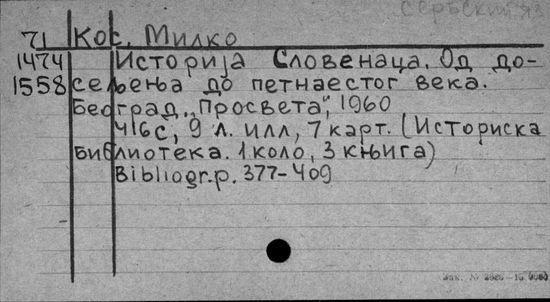 Сербский яз
71 Кос, Милко
1474 Историја Словенаца. Од до-
1558 сељења до петнаестог века.
Београд, „Просвета", 1960
416с, 9 л. илл, 7 карт. (Историска
библиотека. 1 коло, 3 књига)
Bibliogr. p. 377-409
Зак. №